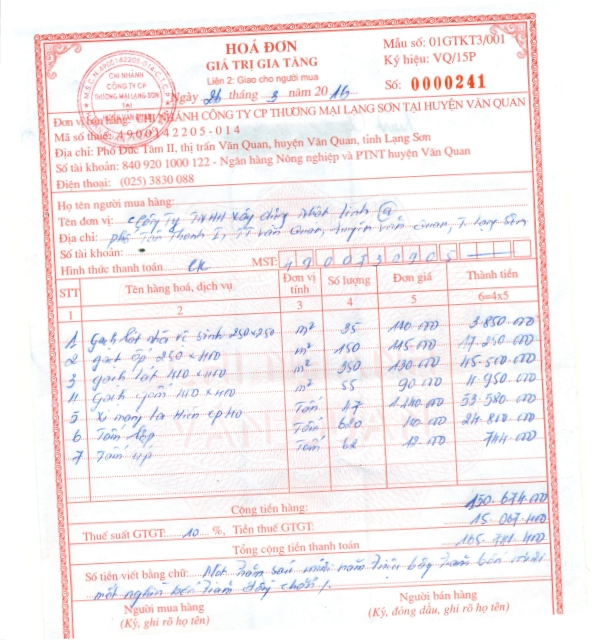 HOÁ ĐƠN
GIÁ TRỊ GIA TĂNG
Liên 2: Giao cho người mua
Ngày 26 tháng 3 năm 2016
Mẫu số: 01GTKT3/001
Ký hiệu: VQ/15P
Số: 0000241
M.S.C.N:4900142205-014.C.T.C.P
CHI NHÁNH
CÔNG TY CP
THƯƠNG MẠI LẠNG SƠN
TẠI
Đơn vị bán hàng: CHI NHÁNH CÔNG TY CP THƯƠNG MẠI LẠNG SƠN TẠI HUYỆN VĂN QUAN
Mã số thuế: 4900142205-014
Địa chỉ: Phố Đức Tâm II, thị trấn Văn Quan, huyện Văn Quan, tỉnh Lạng Sơn
Số tài khoản: 840 920 1000 122 - Ngân hàng Nông nghiệp và PTNT huyện Văn Quan
Điện thoại: (025) 3830 088
Họ tên người mua hàng:
Tên đơn vị: Công Ty TNHH Xây dựng Nhật Linh
Địa chỉ: phố Tân Thanh I, TT Văn Quan, huyện Văn Quan, T. Lạng Sơn
Số tài khoản:
Hình thức thanh toán CK MST: 4900730905
STT Tên hàng hoá, dịch vụ Đơn vị tính Số lượng Đơn giá Thành tiền
1 2 3 4 5 6=4x5
1 Gạch lát nhà vệ sinh 250x250 m² 35 110.000 3.850.000
2 gạch ốp 250x400 m² 150 115.000 17.250.000
3 gạch lát 400x400 m² 350 130.000 45.500.000
4 Gạch gốm 400x400 m² 55 90.000 4.950.000
5 Xi măng La Hiên Tấn 47 1.140.000 53.580.000
6 Tấm lợp Tấm 620 40.000 24.800.000
7 Tấm úp Tấm 62 12.000 744.000
Cộng tiền hàng: 150.674.000
Thuế suất GTGT: 10 %, Tiền thuế GTGT: 15.067.400
Tổng cộng tiền thanh toán 165.741.400
Số tiền viết bằng chữ: Một trăm sáu mươi năm triệu bảy trăm bốn mươi
một nghìn bốn trăm đồng chẵn /
Người mua hàng Người bán hàng
(Ký, ghi rõ họ tên) (Ký, đóng dấu, ghi rõ họ tên)